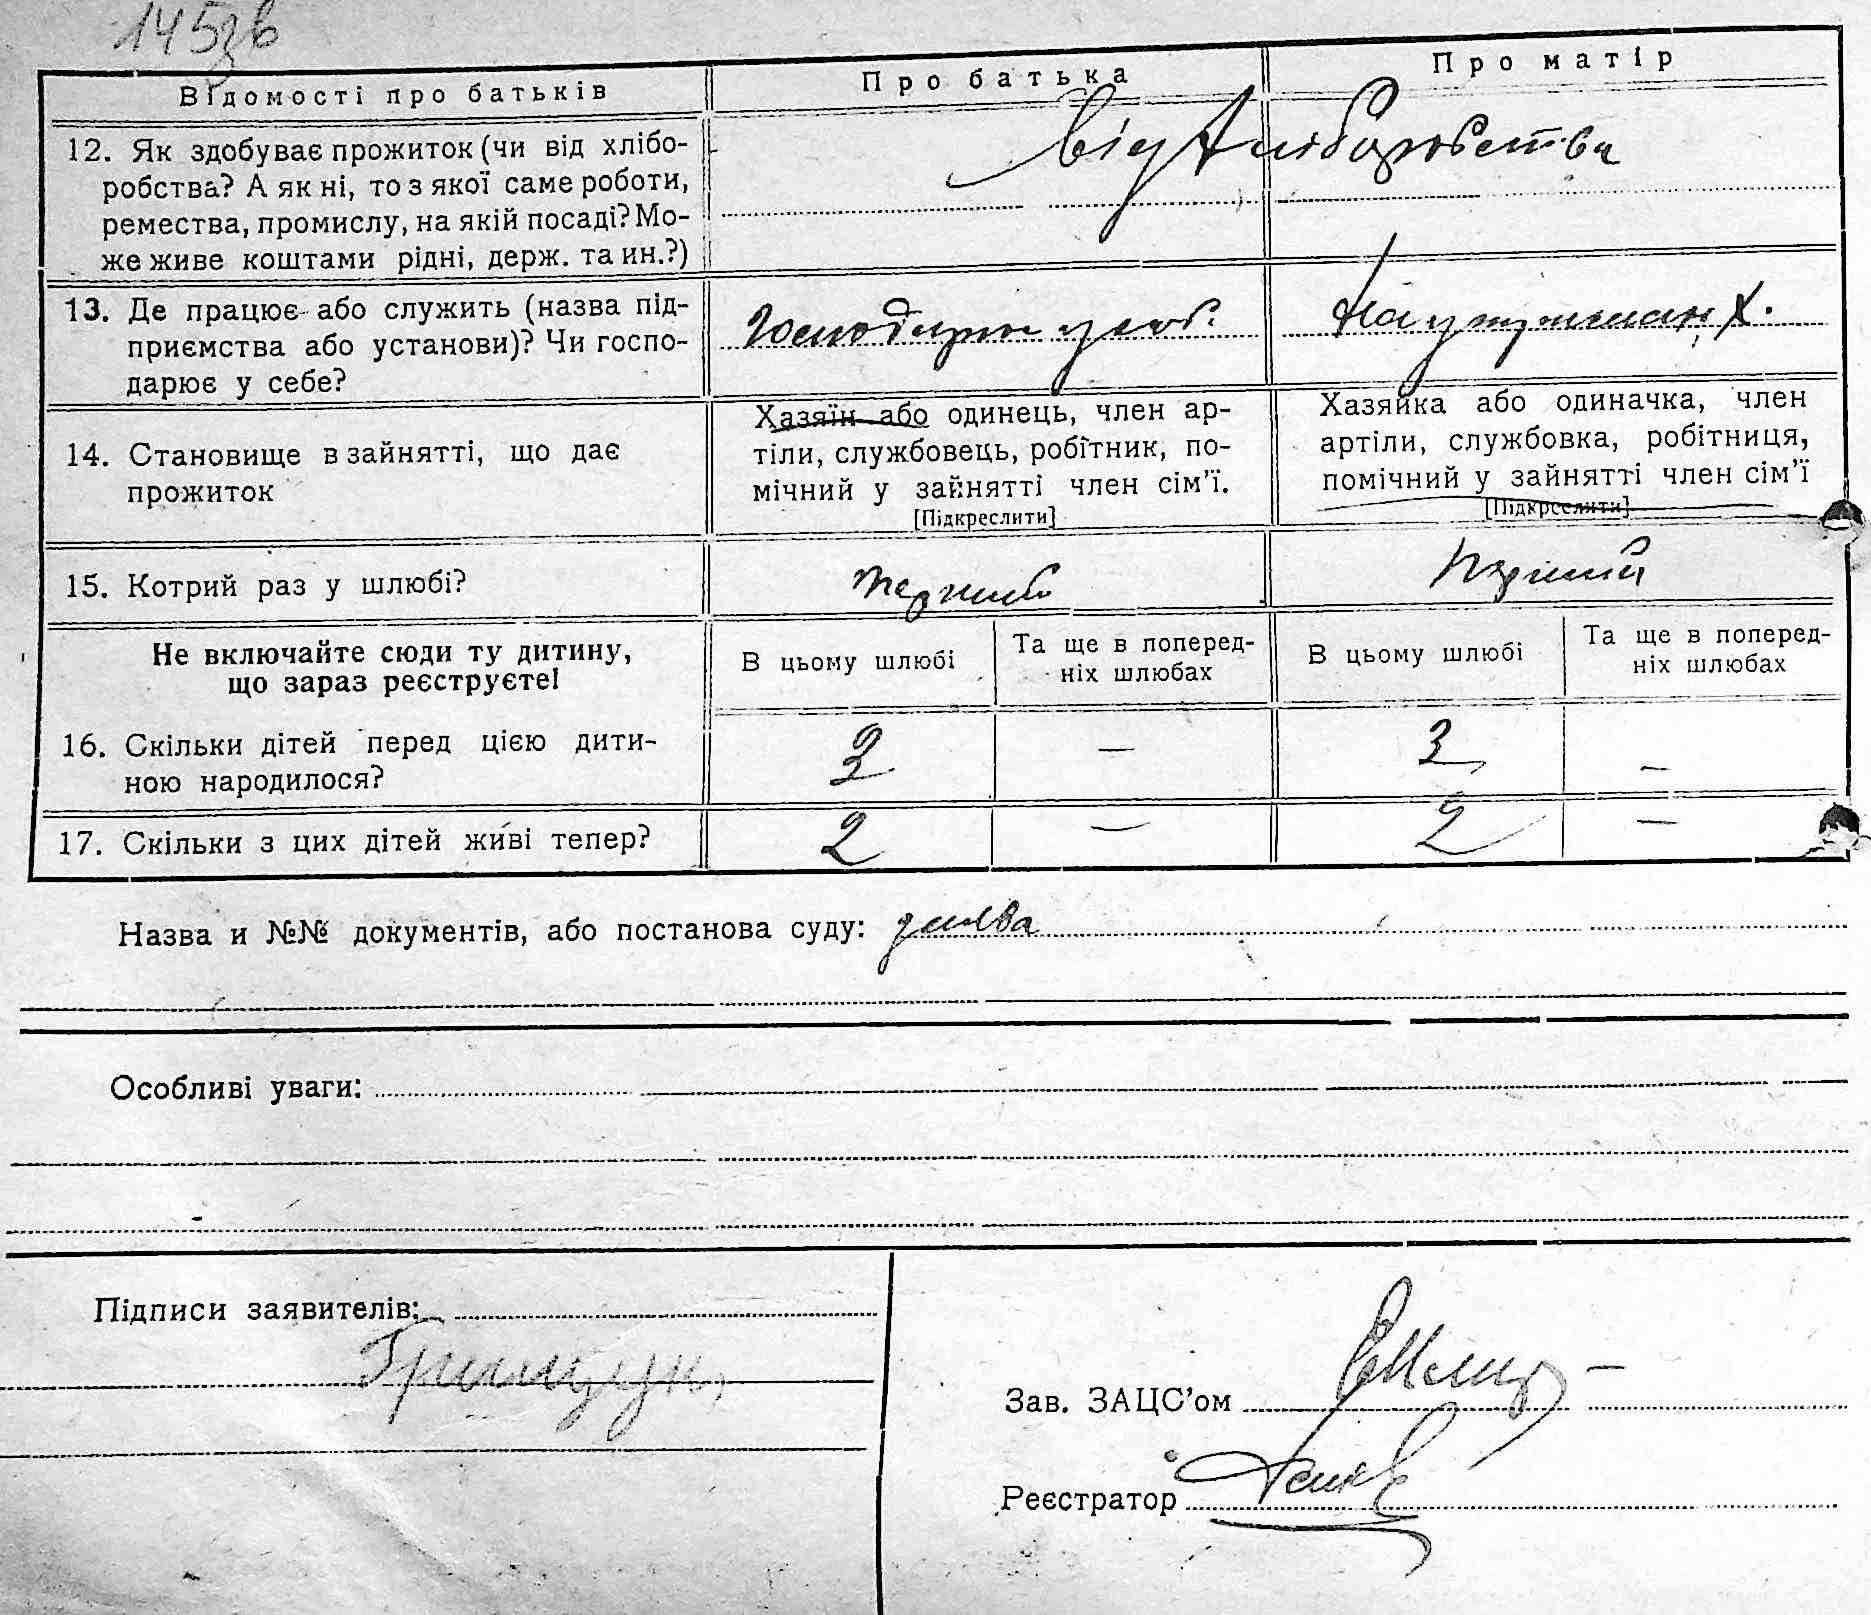 145зв
Відомості про батьків
Про батька
Про матір
12. Як здобуває прожиток (чи від хлібо-
робства? А як ні, то з якої саме роботи,
ремества, промислу, на якій посаді? Мо-
же живе коштами рідні, держ. та ин.?)
від хліборобства
13. Де працює або служить (назва під-
приємства або установи)? Чи госпо-
дарює у себе?
Господарює у соб.
На утриман. Х.
14. Становище в зайнятті, що дає
прожиток
Хазяїн або одинець, член ар-
тіли, службовець, робітник, по-
мічний у зайнятті член сім'ї.
[Підкреслити]
Хазяйка або одиначка, член
артіли, службовка, робітниця,
помічний у зайнятті член сім'ї
[Підкреслити]
15. Котрий раз у шлюбі?
перший
перший
Не включайте сюди ту дитину,
що зараз реєструєте!
В цьому шлюбі
Та ще в поперед-
ніх шлюбах
В цьому шлюбі
Та ще в поперед-
ніх шлюбах
16. Скільки дітей перед цією дити-
ною народилося?
3 — 3 —
17. Скільки з цих дітей живі тепер?
2 — 2 —
Назва и №№ документів, або постанова суду: заява
Особливі уваги:
Підписи заявителів:
Зав. ЗАЦС'ом
Реєстратор